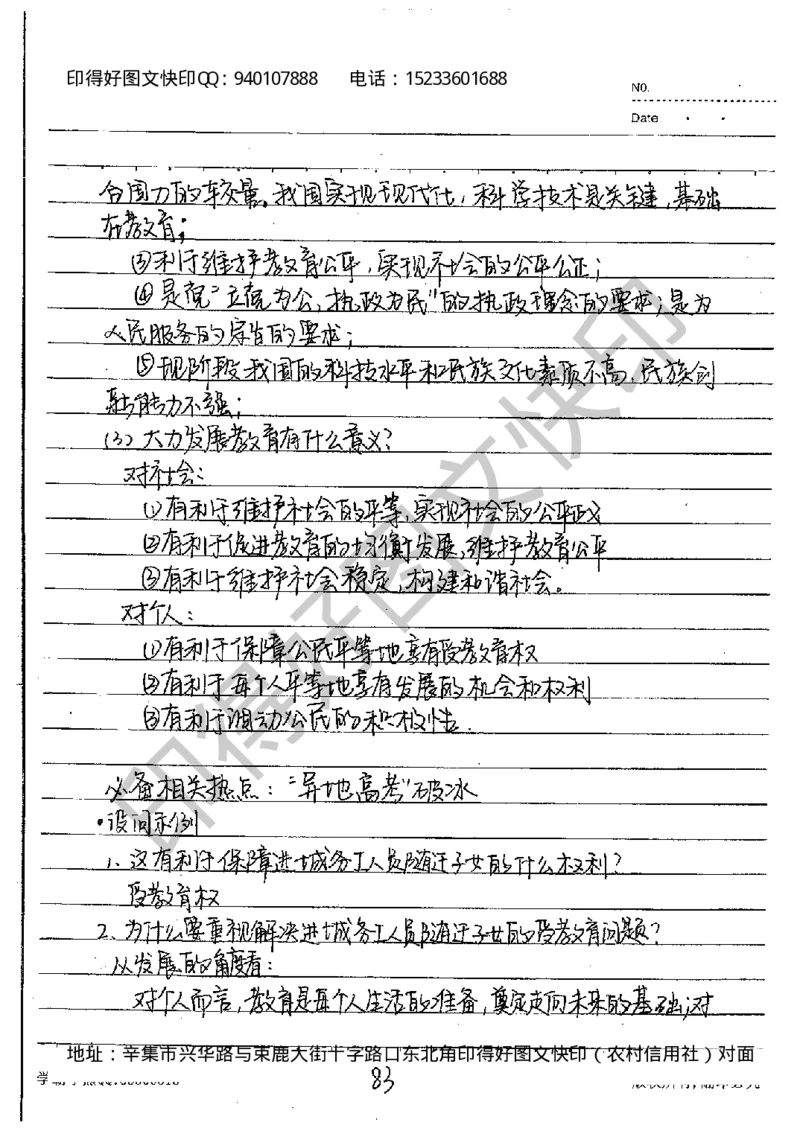 印得好图文快印QQ：940107888 电话：15233601688
NO.
Date
合国力的较量。我国实现现代化，科学技术是关键，基础
在教育；
③利于维护教育公平，实现社会的公平公正；
④是党"立党为公，执政为民"的执政理念的要求；是为
人民服务的宗旨的要求；
⑤现阶段我国的科技水平和民族文化素质不高，民族创
新能力不强；
(3) 大力发展教育有什么意义？
对社会：
①有利于维护社会的平等，实现社会的公平正义
②有利于促进教育的均衡发展，维护教育公平
③有利于维护社会稳定，构建和谐社会。
对个人：
①有利于保障公民平等地享有受教育权
②有利于每个人平等地享有发展的机会和权利
③有利于调动公民的积极性.
必备相关热点："异地高考"破冰
·设问示例
1、这有利于保障进城务工人员随迁子女的什么权利？
受教育权
2、为什么要重视解决进城务工人员随迁子女的受教育问题？
从发展的角度看：
对个人而言，教育是每个人生活的准备，奠定走向未来的基础；对
地址：辛集市兴华路与束鹿大街十字路口东北角印得好图文快印（农村信用社）对面
83
印得好图文快印